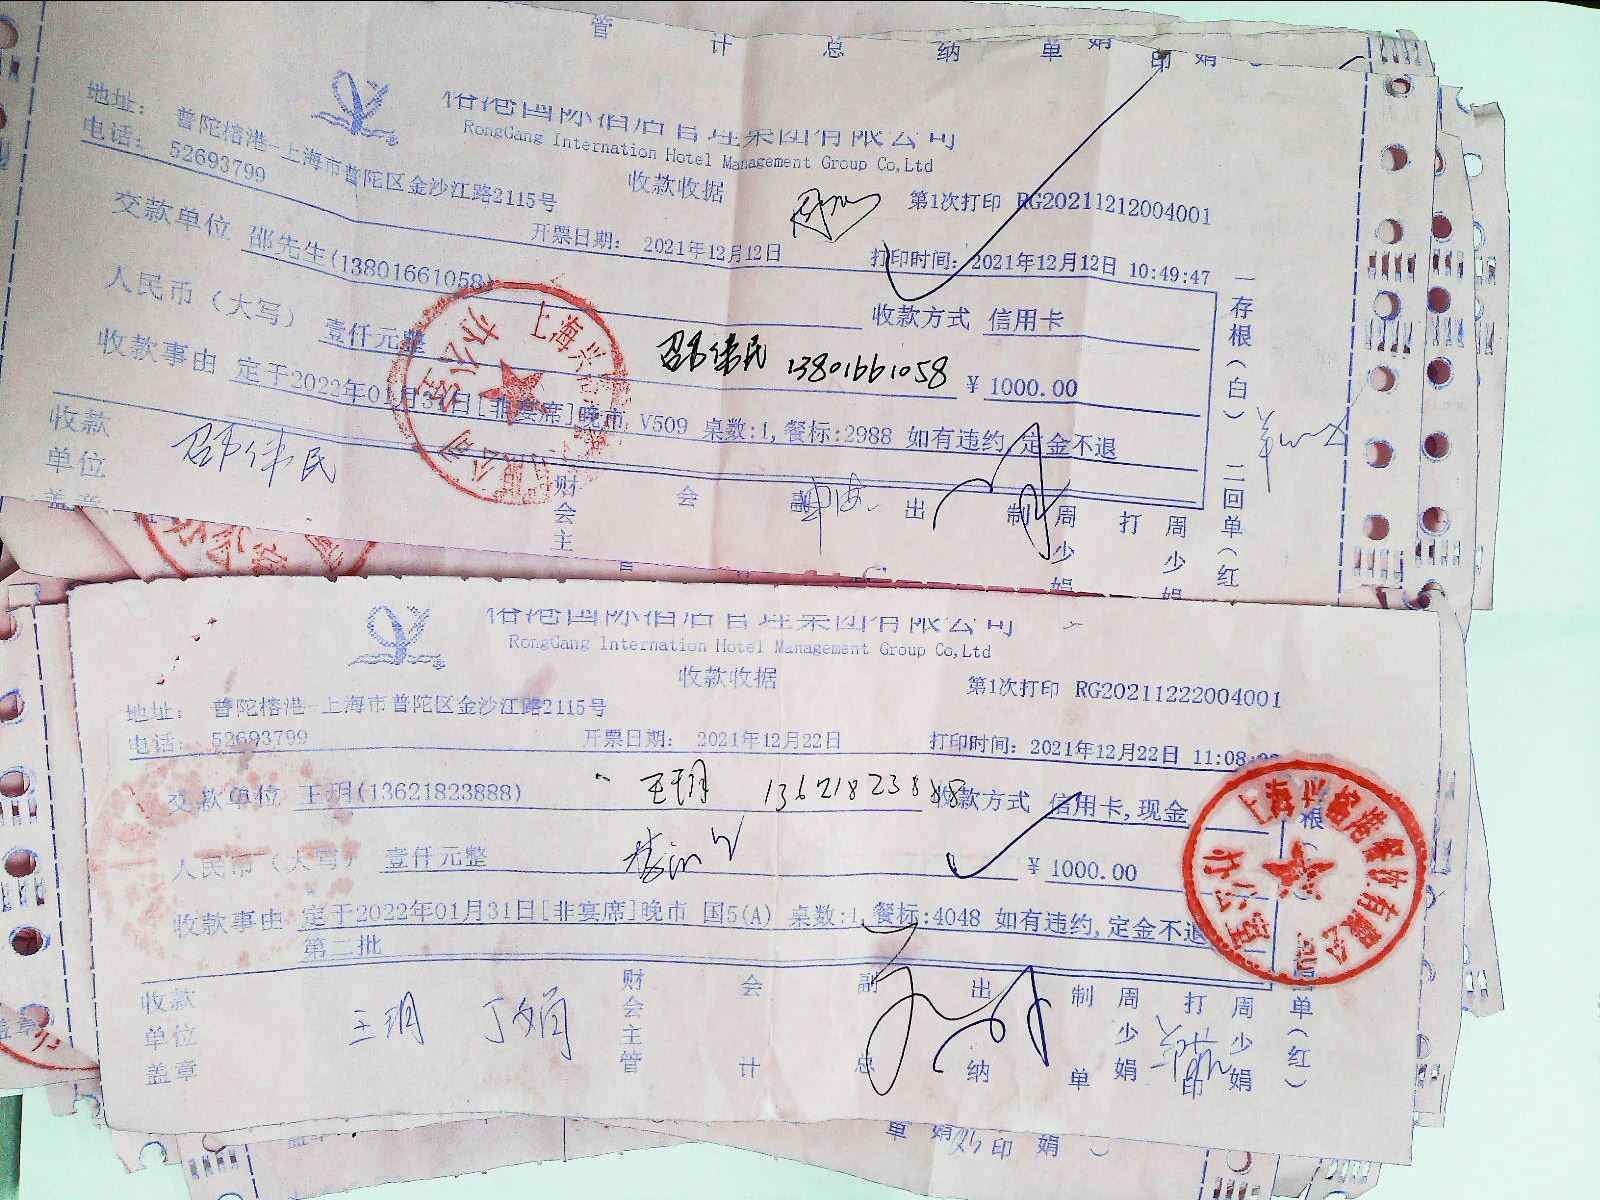 管 计 总 纳 单 娟 印 娟
榕港国际酒店管理集团有限公司
RongGang International Hotel Management Group Co,Ltd
收款收据
第1次打印 RG20211212004001
地址： 普陀榕港-上海市普陀区金沙江路2115号
电话： 52693799
开票日期： 2021年12月12日
打印时间：2021年12月12日 10:49:47
交款单位 邵先生(13801661058)
收款方式 信用卡
人民币（大写） 壹仟元整
邵伟民 13801661058
￥ 1000.00
收款事由 定于2022年01月31日[非宴席]晚市 V509 桌数:1,餐标:2988 如有违约,定金不退
一存根(白) 二回单(红
收款单位盖章
邵伟民
财会主 会 副 出 制 周少娟 打 周少娟
上海兴 限公司
办公室
办公室
榕港国际酒店管理集团有限公司
RongGang International Hotel Management Group Co,Ltd
收款收据
第1次打印 RG20211222004001
地址： 普陀榕港-上海市普陀区金沙江路2115号
电话： 52693799
开票日期： 2021年12月22日
打印时间：2021年12月22日 11:08:
交款单位 王玥(13621823888)
王玥 13621823888
收款方式 信用卡,现金
人民币（大写） 壹仟元整
￥ 1000.00
收款事由 定于2022年01月31日[非宴席]晚市 国5(A) 桌数:1,餐标:4048 如有违约,定金不退
第二批
上海兴榕港餐饮有限公司
办公室
根
单(红)
收款单位盖章
王玥 丁文娟
财会主管 会计 副总 出纳 制单 周少娟 打印 周少娟
盖章
单 娟 印 娟 )